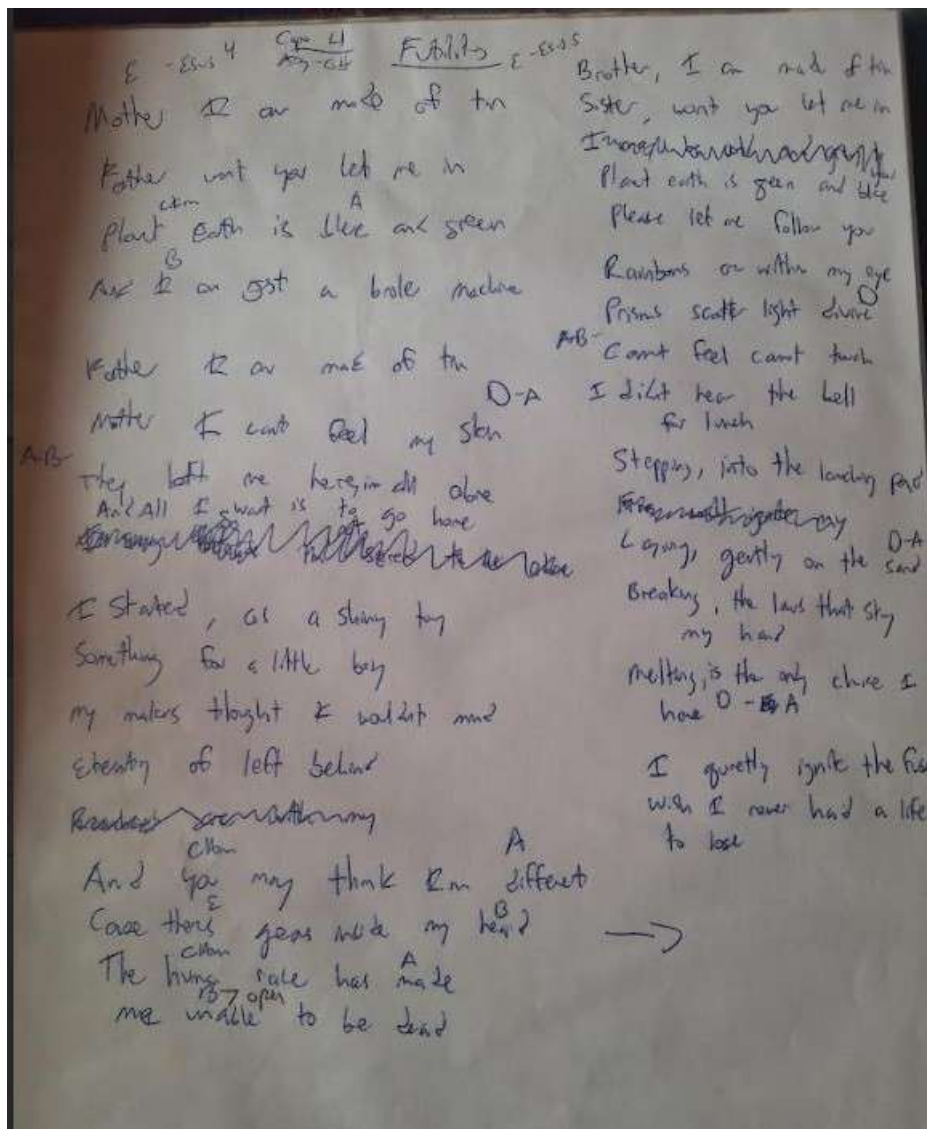 E -Esus4 Capo 4 Futility E -Esus
Mother I am made of tin
Father wont you let me in
C#m A
Planet Earth is blue and green
B
And I am just a broken machine
Father I am made of tin
D-A
Mother I cant feel my skin
A-B-
They left me here, im all alone
And All I want is to go home
I started, as a shiny toy
Something for a little boy
my makers thought I wouldnt mind
Eternity of left behind
C#m A
And you may think Im different
E B
Cause theres gears inside my head
C#m A
The human race has made
B7 open
me unable to be dead
Brother, I am made of tin
Sister, wont you let me in
Planet earth is green and blue
Please let me follow you
Rainbows are within my eye
D
Prisms scatter light divine
A-B-
Cannt feel cannt touch
I didnt hear the bell
for lunch
Stepping, into the landing pad
D-A
Laying, gently on the sand
Breaking, the laws that stay
my hand
melting, is the only choice I
have D - A
I quietly ignite the fuse
wish I never had a life
to lose
→